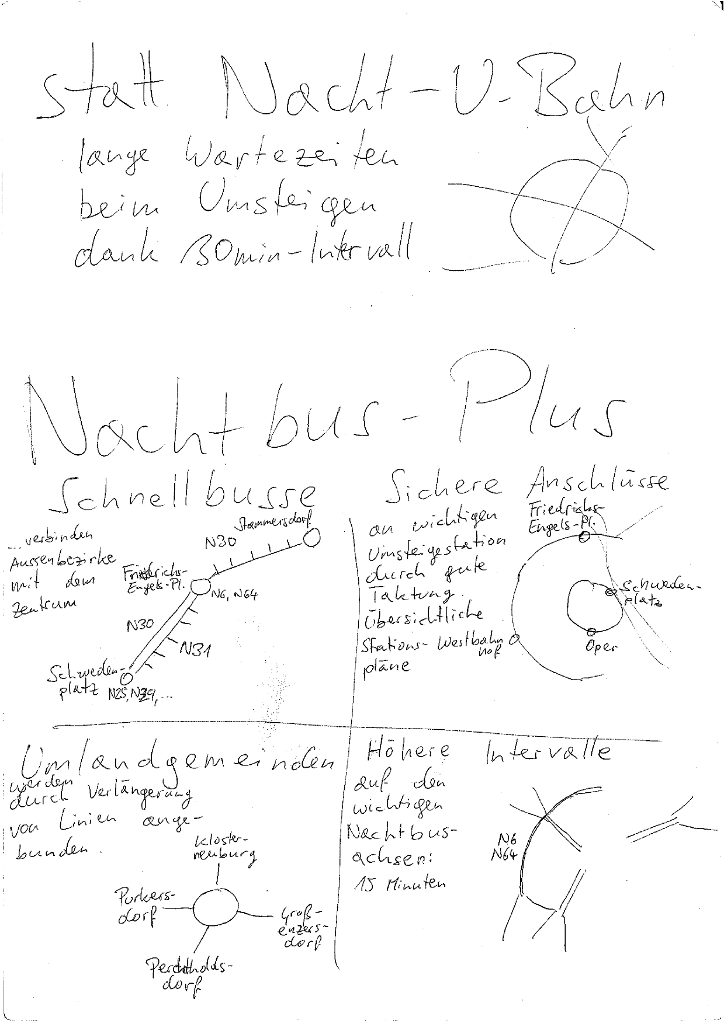 statt Nacht-U-Bahn
lange Wartezeiten
beim Umsteigen
dank 30min-Intervall
Nachtbus-Plus
Schnellbusse
...verbinden
Aussenbezirke
mit dem
Zentrum
Stammersdorf
N30
Friedrichs-
Engels-Pl.
N6, N64
N30
N31
Schweden-
platz
N25, N29, ...
Sichere Anschlüsse
an wichtigen
Umsteigestation
durch gute
Taktung.
Übersichtliche
Stations-
pläne
Friedrichs-
Engels-Pl.
Schweden-
platz
Westbahn
hof
Oper
Umlandgemeinden
werden
durch Verlängerung
von Linien ange-
bunden.
Kloster-
neuburg
Purkers-
dorf
Groß-
enzers-
dorf
Perchtholds-
dorf
Höhere Intervalle
auf den
wichtigen
Nachtbus-
achsen:
15 Minuten
N6
N64